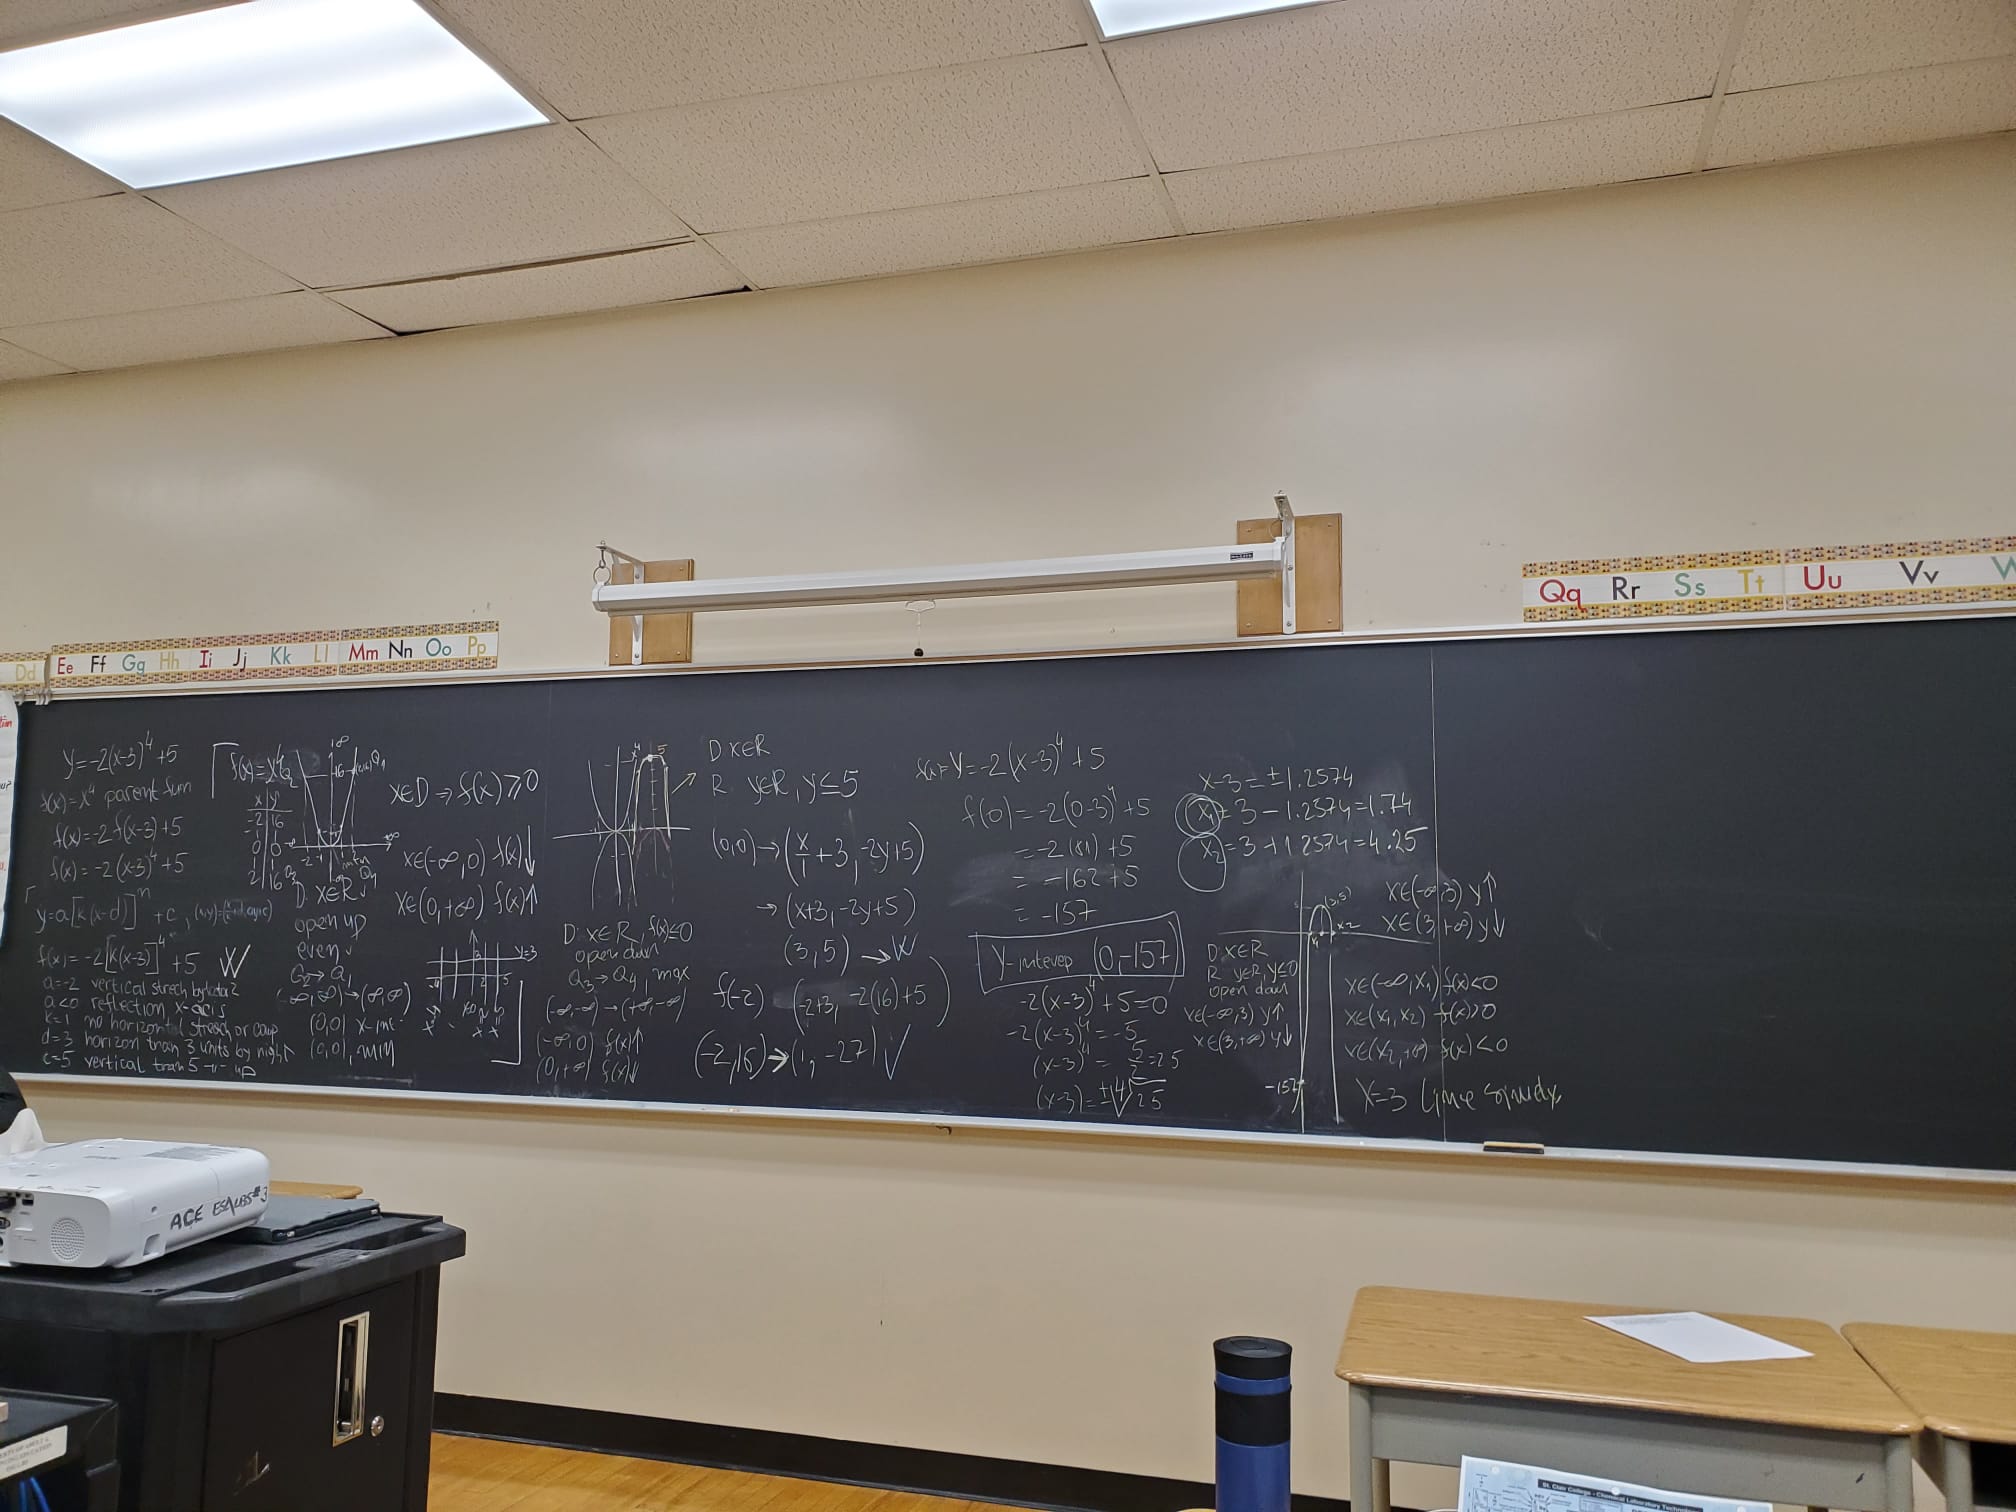 Dd Ee Ff Gg Hh Ii Jj Kk Ll Mm Nn Oo Pp
Qq Rr Ss Tt Uu Vv W
y=-2(x-3)⁴+5
f(x)=x⁴ parent fun
f(x)=-2f(x-3)+5
f(x)=-2(x-3)⁴+5
y=a[k(x-d)]ⁿ+c,
f(x)=-2[k(x-3)]⁴+5
a=-2 vertical strech by 2
a<0 reflection, x-axis
k=1 no horizontal strech or comp
d=3 horizon tran 3 units by right
c=5 vertical tran 5 -11- up
f(x)=x⁴
x y
-2 16
-1 1
0 0
1 1
2 16
Q2
Q1
Q3
Q4
D: x∈R
open up
even
Q2→Q1
(-∞,∞)→(∞,∞)
(0,0) x-int
(0,0), min
x∈D⇒f(x)≥0
x∈(-∞,0) f(x)↓
x∈(0,+∞) f(x)↑
y=3
x⁴
5
D: x∈R, f(x)≤0
open down
Q3→Q4, max
(-∞,-∞)→(+∞,-∞)
(-∞,0) f(x)↑
(0,+∞) f(x)↓
D x∈R
R: y∈R, y≤5
(0,0)→(x/1+3, -2y+5)
→(x+3, -2y+5)
(3,5)→W
f(-2) (-2+3, -2(16)+5)
(-2,16)→(1,-27)✓
f(x)=y=-2(x-3)⁴+5
f(0)=-2(0-3)⁴+5
=-2(81)+5
=-162+5
=-157
y-intercep (0,-157)
-2(x-3)⁴+5=0
-2(x-3)⁴=-5
(x-3)⁴=5/2=2.5
(x-3)=±⁴√2.5
x-3=±1.2574
x₁=3-1.2574=1.74
x₂=3+1.2574=4.25
(3,5)
x2
-157
D: x∈R
R: y∈R, y≤0
open down
x∈(-∞,3) y↑
x∈(3,+∞) y↓
x∈(-∞,3) y↑
x∈(3,+∞) y↓
x∈(-∞,x₁) f(x)<0
x∈(x₁,x₂) f(x)>0
x∈(x₂,+∞) f(x)<0
x=3 line
ACE ESL/LBS #3
St. Clair College - Chemical Laboratory Technology